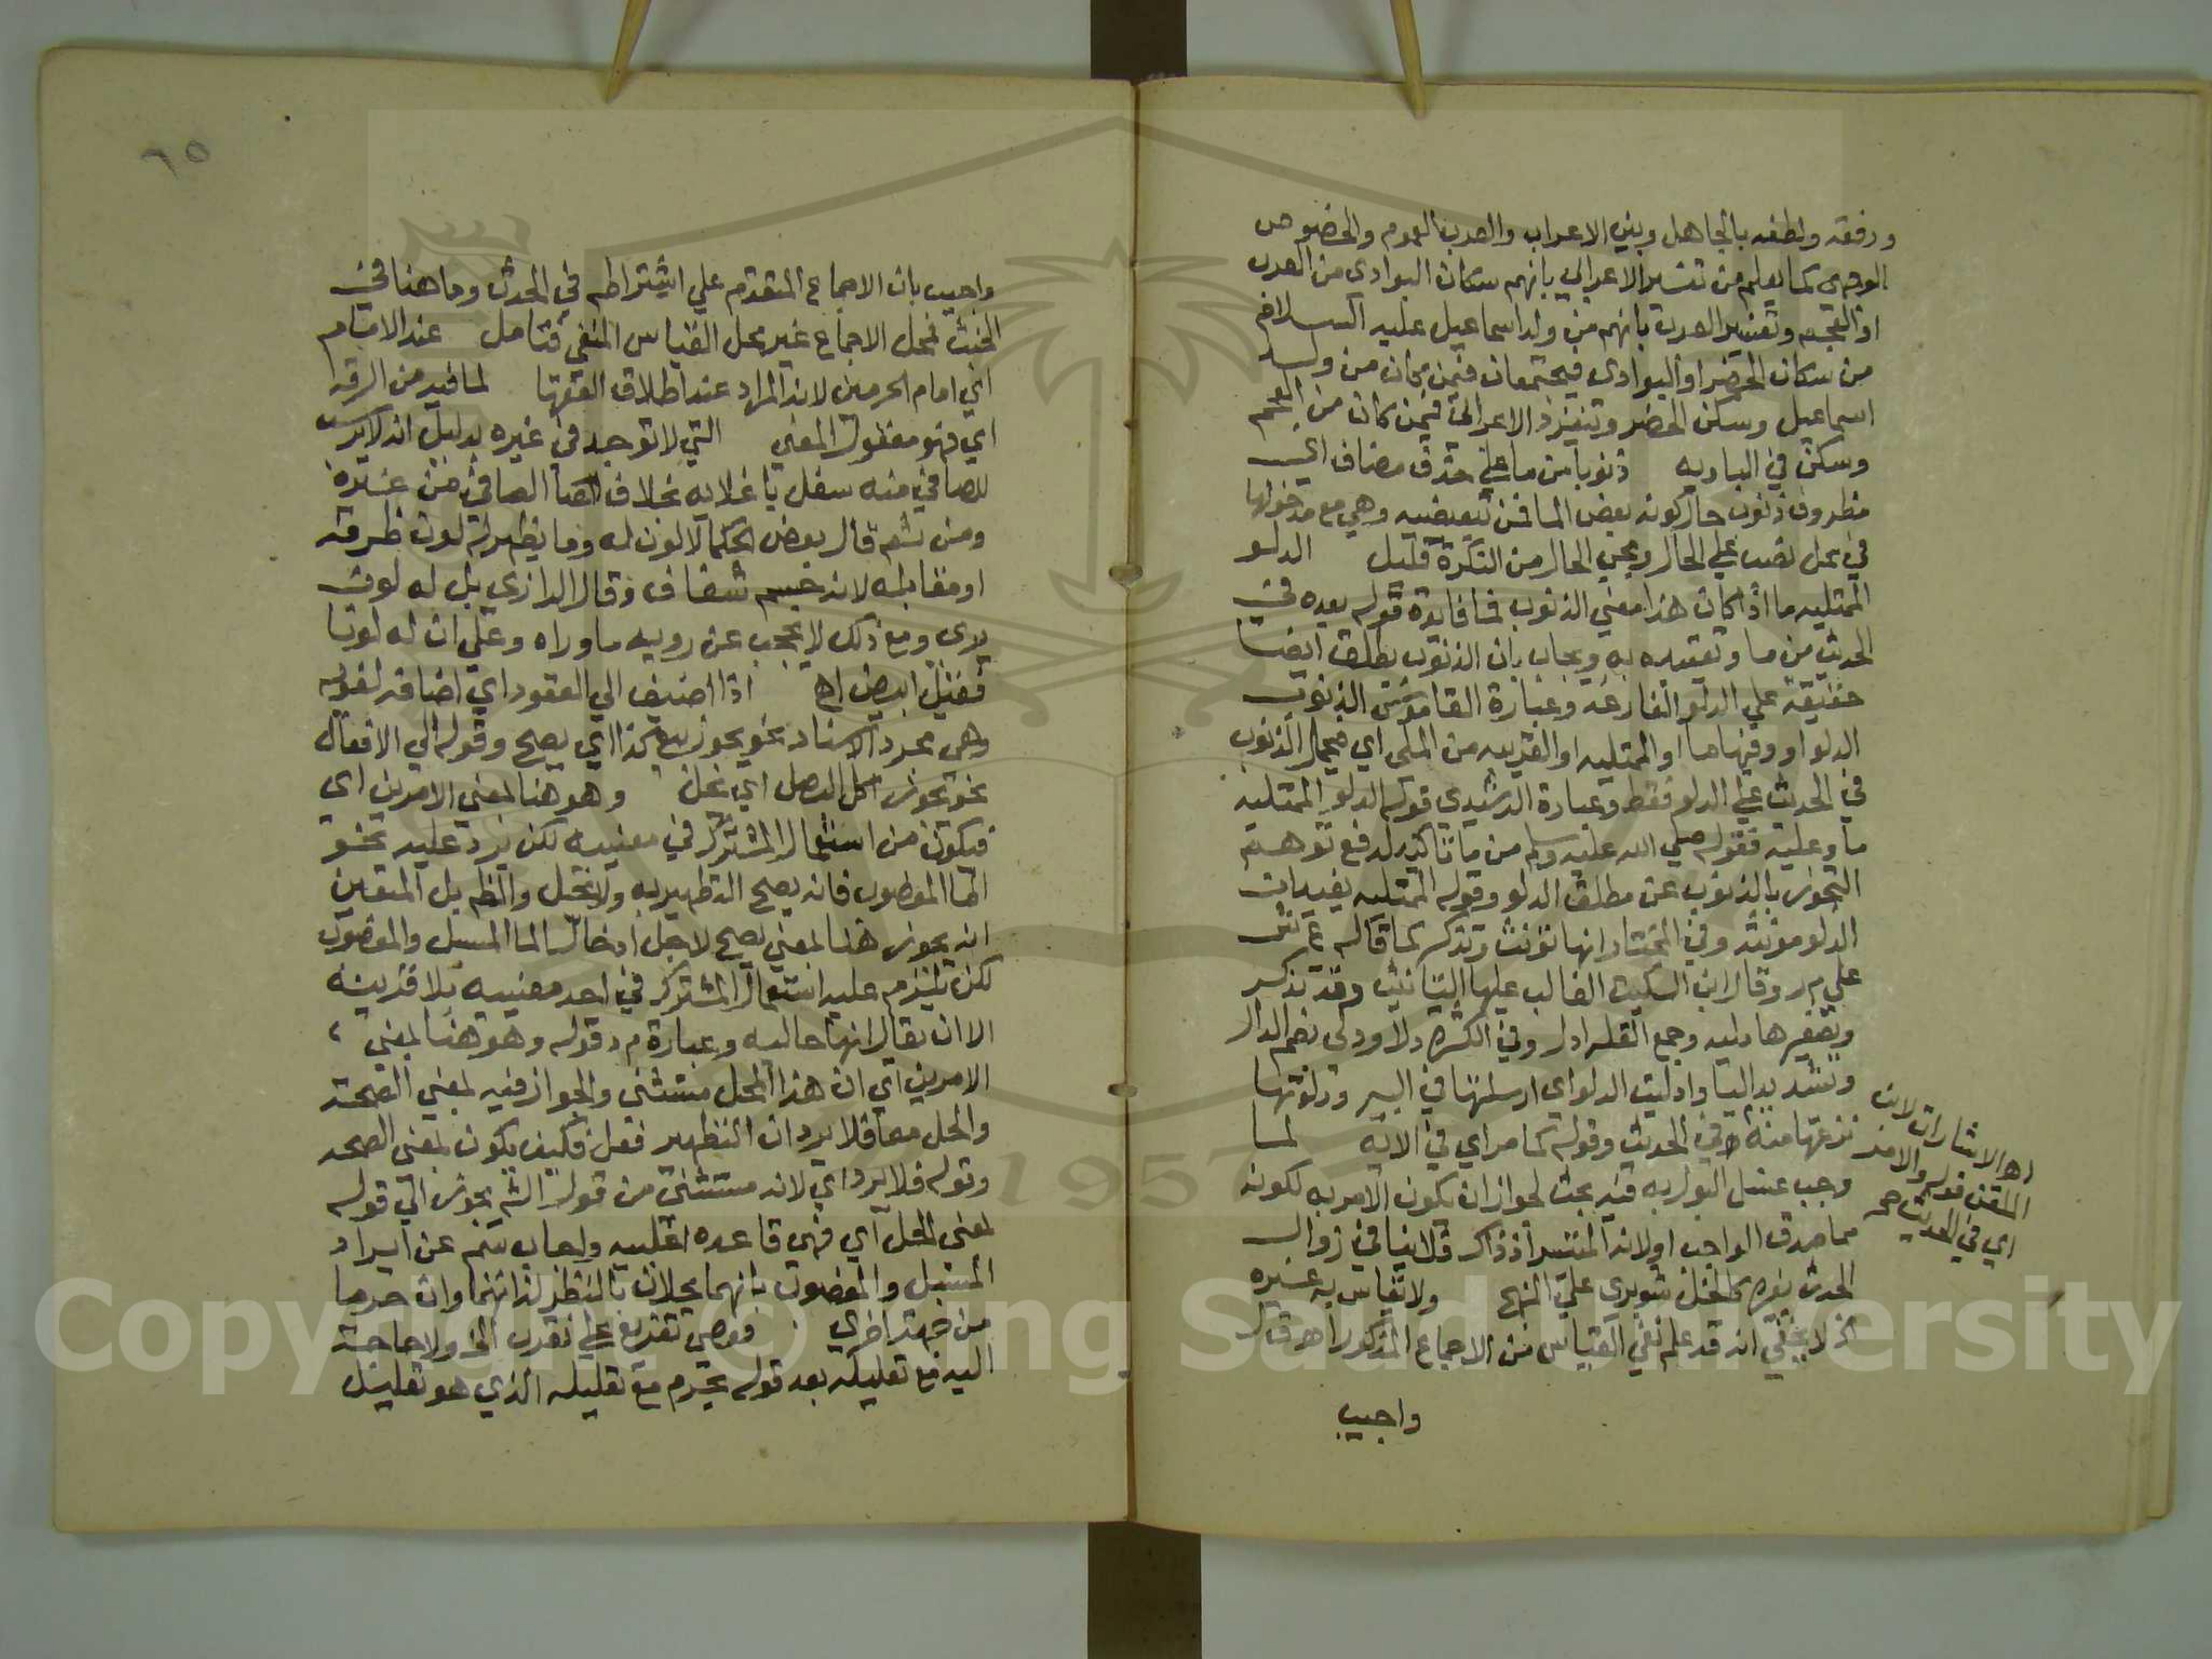 ورفقه ولطفه بالجاهل وبين الاعراب والعرب العموم والخصوص
الوجهي كما يعلم من تفسير الاعرابي بانهم سكان البوادي من العرب
او العجم وتفسير العرب بانهم من ولد اسماعيل عليه السلام
من سكان الحضر او البوادي فيجتمعان فيمن كان من ولد
اسماعيل وسكن الحضر وتنفرد الاعرابي فيمن كان من العجم
وسكن في الباديه ذنوبا من ماء على حذف مضاف اي
مظروف ذنوب حال كونه بعض الما فمن تبعيضيه وهي مع مدخولها
في محل نصب على الحال ومجي الحال من النكرة قليل الدلو
الممتليه ما اذا كان هذا معني الذنوب فما فايدة قوله بعده في
الحديث من ما وتقييده به ويجاب بان الذنوب يطلق ايضا
حقيقة علي الدلو الفارغه وعبارة القاموس الذنوب
الدلو او وفيها ما او الممتليه او القريبه من الملي اي فيحمل الذنوب
في الحديث علي الدلو فقط وعبارة الرشيدي قوله الدلو الممتليه
ما وعليه فقوله صلي الله عليه وسلم من ما تاكيد لدفع توهم
التجوز بالذنوب عن مطلق الدلو وقوله الممتليه يفيد ان
الدلو مونثه وفي المختار انها تونث وتذكر كما قاله ع ش
علي م ر وقال ابن السكيت الغالب عليها التانيث وقد تذكر
وتصغيرها دليه وجمع القله ادل وفي الكثره دلا ودلي بضم الدال
وتشديد اليا وادليت الدلو اي ارسلتها في البير ودلوتها
نزعتها منه في الحديث وقوله كما مر اي في الايه لما
وجب غسل البول به فيه بحث لجواز ان يكون الامر به لكونه
مما صدق الواجب اولانه المتيسر اذ ذاك فلا ينافي زوال
الحدث بغيره كالخل شوبري علي النهج ولا يقاس به غيره
لا يخفي انه قد علم نفي القياس من الاجماع المذكور اهـ قال
واجيب
اهـ الا اشارات لابن
الملقن قوله والامر
اي في الحديث
٦٥
واجيب بان الاجماع المتقدم علي اشتراطه في الحدث وما هنا في
الخبث فمحل الاجماع غير محل القياس المنفي فتامل عند الامام
اي امام الحرمين لانه المراد عند اطلاق الفقها لما فيه من الرقه
اي فهو معقول المعني التي لا توجد في غيره بدليل انه لا يرسب
للصافي منه سفل باغلايه بخلاف الصافي من غيره
ومن ثم قال بعض الحكما لا لون له وما يظهر له لون ظرفه
او مقابله لانه جسم شفاف وقال الرازي بل له لون
يري ومع ذلك لا يحجب عن رويه ما وراه وعلي ان له لونا
فقيل ابيض اهـ اذا اضيف الي العقود اي اضافه لغويه
وهي مجرد الاسناد نحو يجوز بيع كذا اي يصح وقوله الي الافعال
نحو يجوز اكل البصل اي يحل وهو هنا لمعني الامرين اي
فيكون من استعمال المشترك في معنييه لكن يرد عليه نحو
الما المغصوب فانه يصح التطهير به ولا يحل والظم بل المتعين
انه يجوز هنا لمعني يصح لاجل ادخال الما المسبل والمغصوب
لكن يلزم عليه استعمال المشترك في احد معنييه بلا قرينه
الا ان يقال انها حاليه وعبارة م د قوله وهو هنا لمعني
الامرين اي ان هذا المحل مستثني والجواز فيه لمعني الصحة
والحل معا فلا يرد ان التطهير فعل فكيف يكون لمعني الصحه
وقوله فلا يرد اي لانه مستثني من قول الشم يجوز الي قوله
لمعني الحل اي فهي قاعده اغلبيه واجاب سم عن ايراد
المسبل والمغصوب بانهما يحلان بالنظر لذاتهما وان حرما
من جهة اخري فرضي تفريع علي تعذر الخ ولا حاجة
اليه مع تعليله بعد قوله يحرم مع تعليله الذي هو تعليل